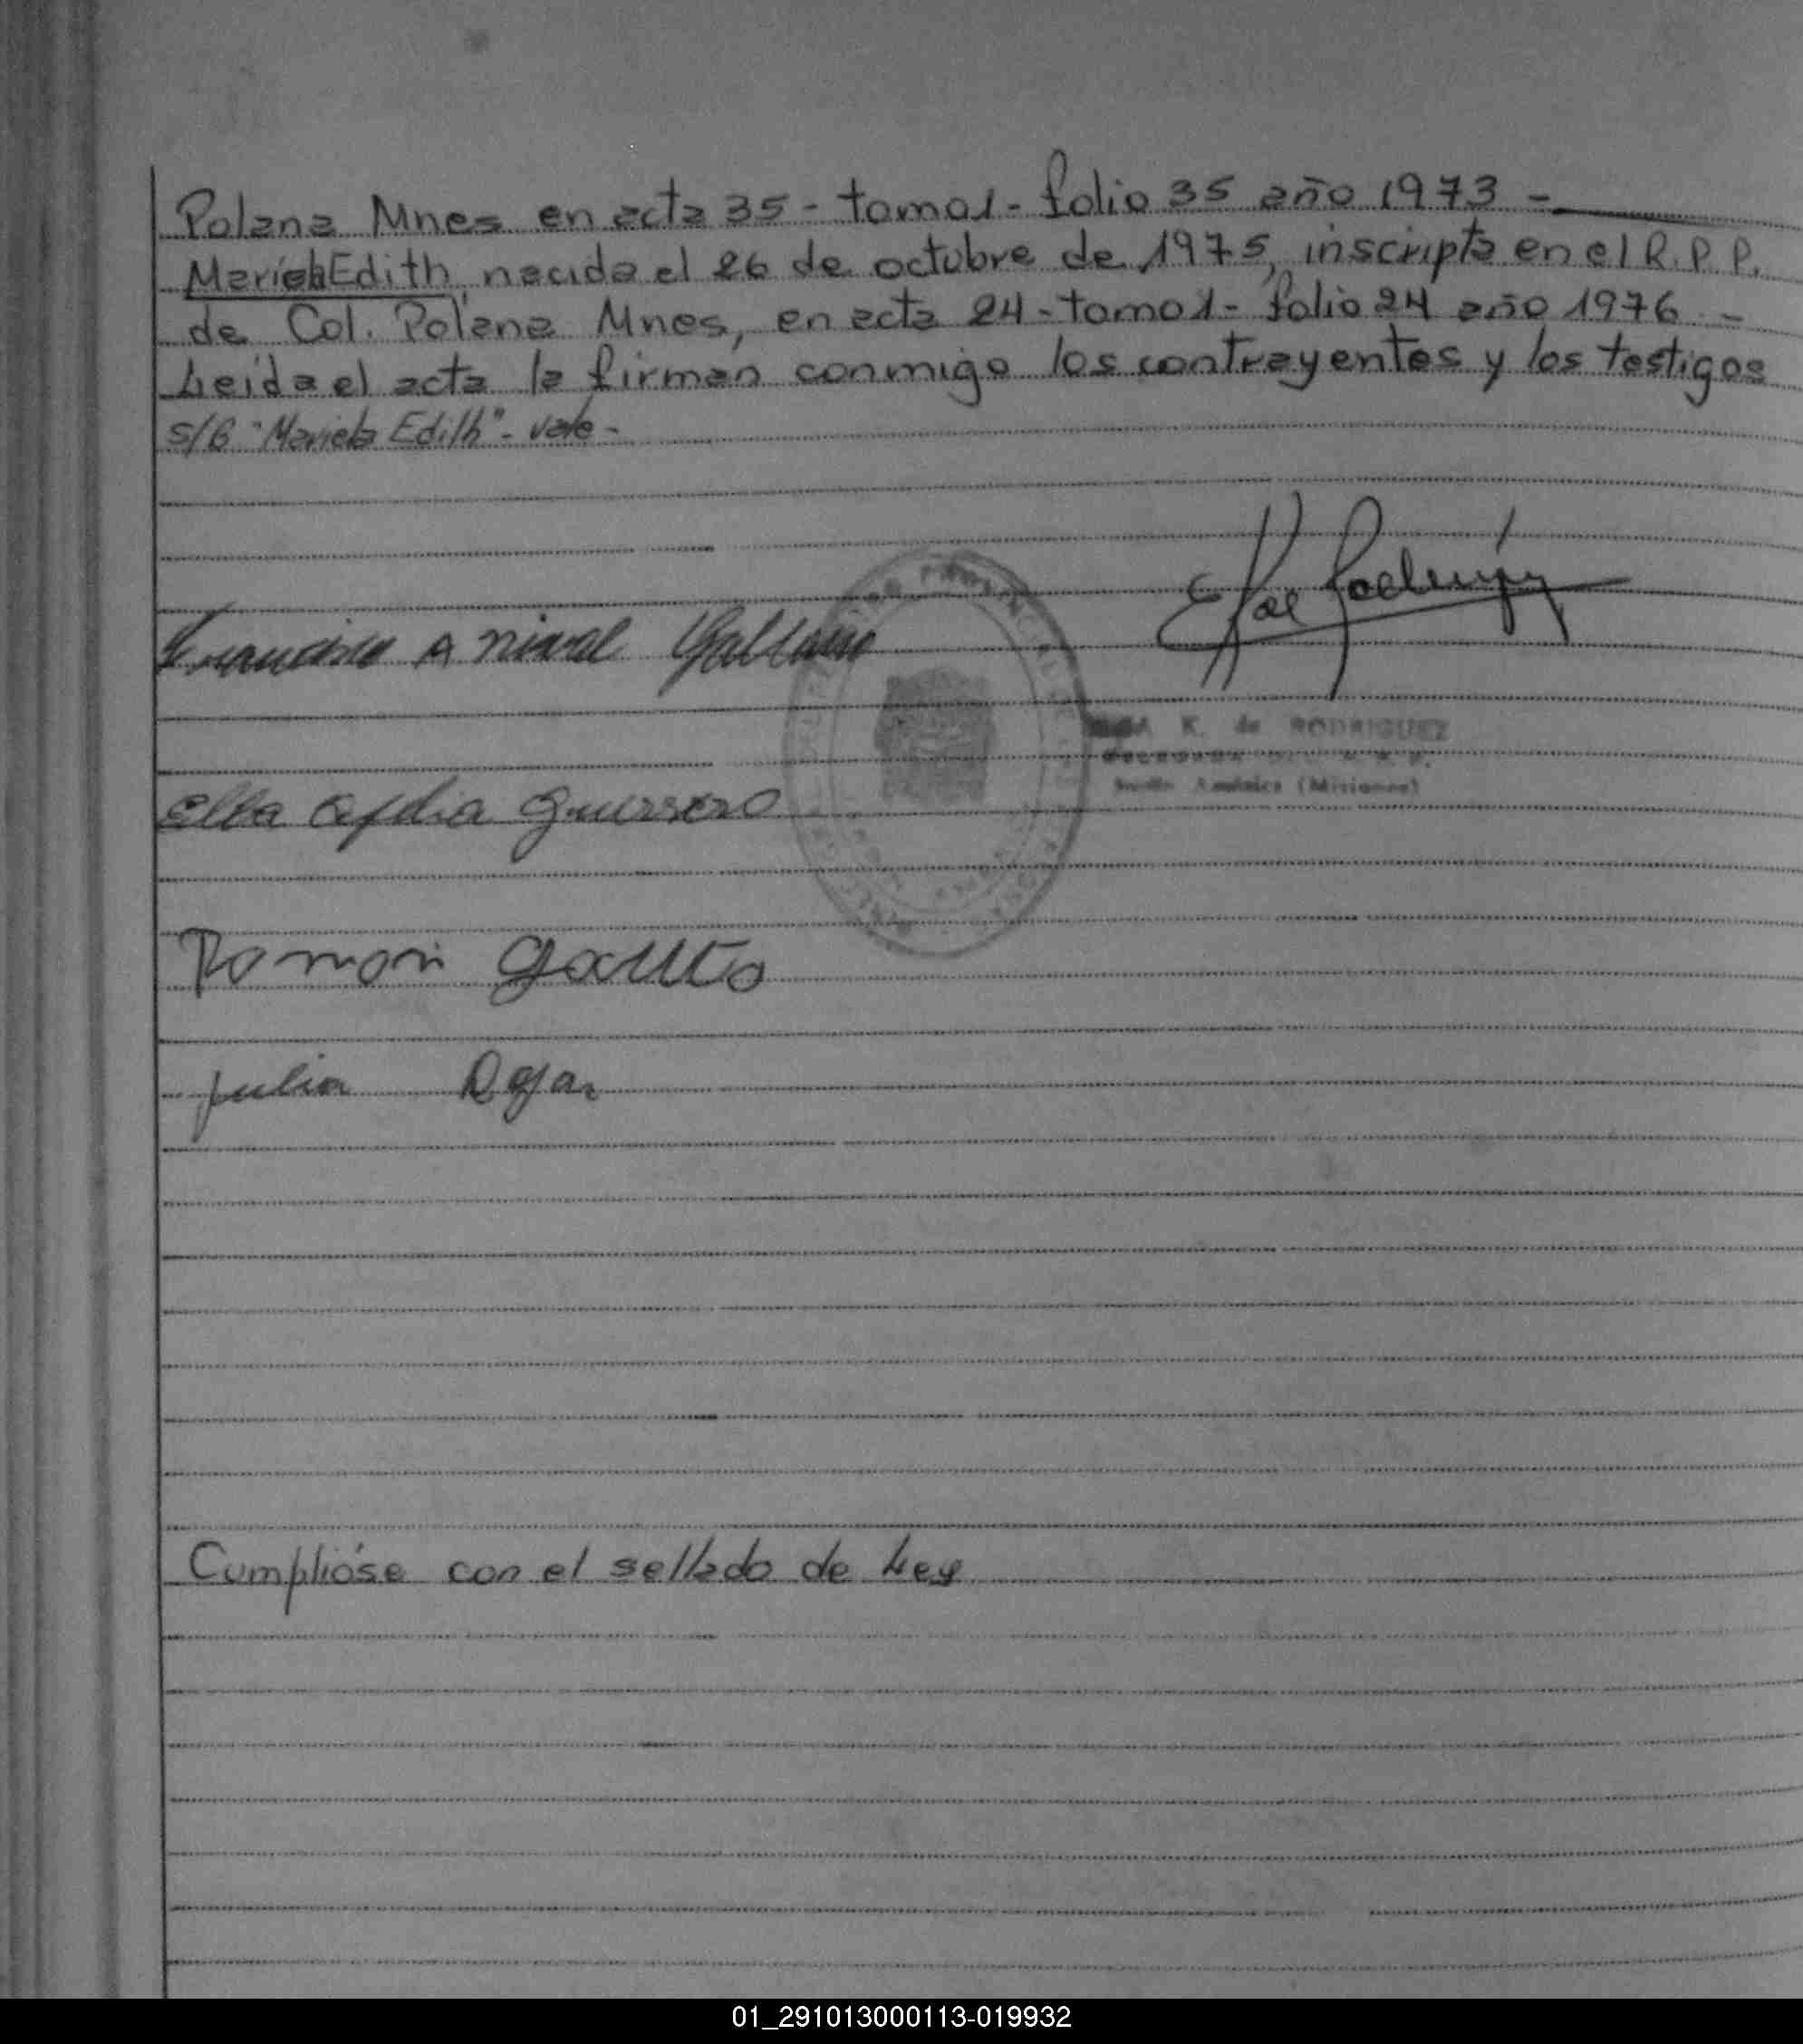 Polana Mnes en acta 35 - tomo 1 - folio 35 año 1973 -
Mariela Edith, nacida el 26 de octubre de 1975, inscripta en el R.P.P.
de Col. Polana Mnes, en acta 24 - tomo 1 - folio 24 año 1976 -
Leida el acta la firman conmigo los contrayentes y los testigos
s/B "Mariela Edith" - vale -
Francisco A
K. de RODRIGUEZ
(Misiones)
Elba Guerrero
Ramon
Julia
Cumplióse con el sellado de Ley
01_291013000113-019932